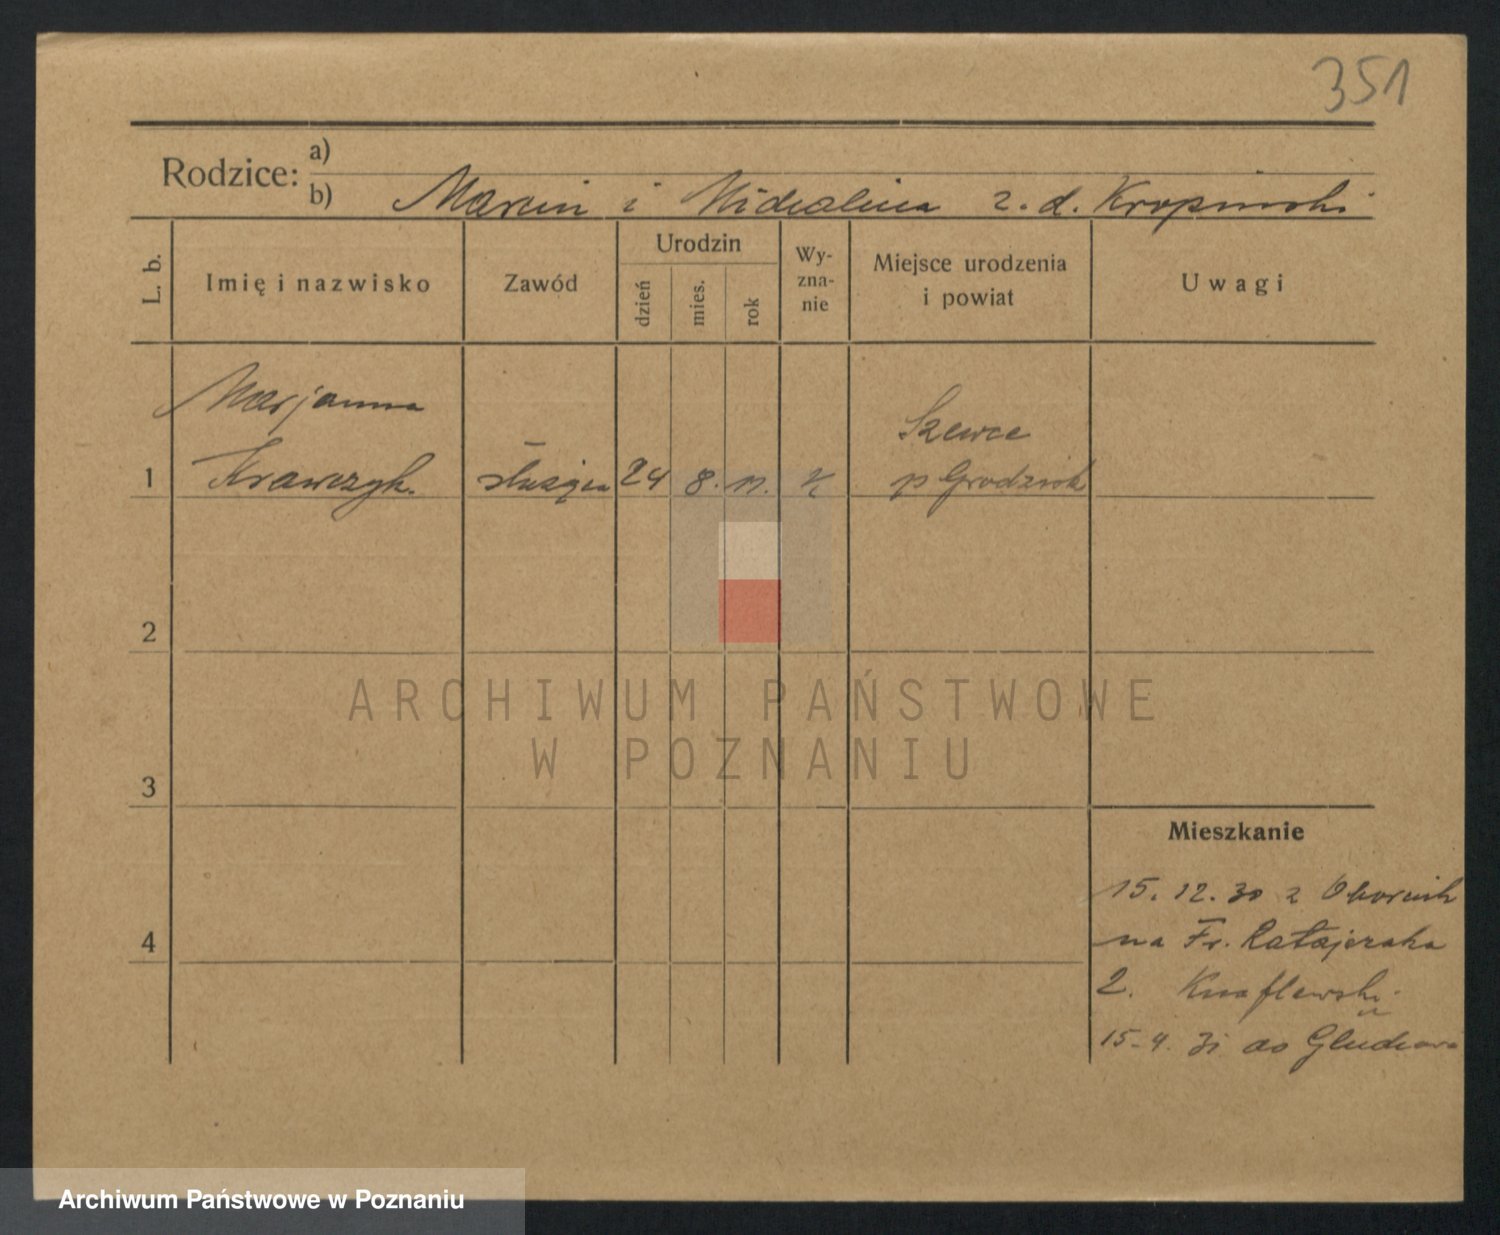 351
Rodzice: a)
b) Marcin i Michalina z. d. Kropinski
L. b.
Imię i nazwisko
Zawód
Urodzin
dzień
mies.
rok
Wy-
zna-
nie
Miejsce urodzenia
i powiat
Uwagi
Marjanna
1 Krawczyk. służąca 24 8. 11. k
Szewce
p Grodzisk
2
3
4
ARCHIWUM PAŃSTWOWE
W POZNANIU
Mieszkanie
15. 12. 30 z Obornik
na Fr. Ratajczaka
2. Knaflewski
15. 4. 31 do
Archiwum Państwowe w Poznaniu